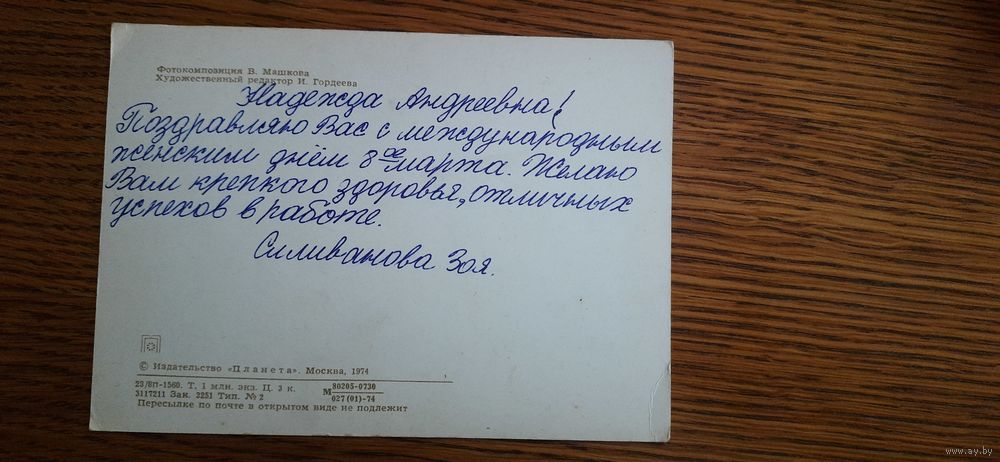 Фотокомпозиция В. Машкова
Художественный редактор И. Гордеева
Надежда Андреевна!
Поздравляю Вас с международным
женским днём 8ое марта. Желаю
Вам крепкого здоровья, отличных
успехов в работе.
Силиванова Зоя.
© Издательство «Планета». Москва, 1974
23/8п-1560. Т. 1 млн. экз. Ц. 3 к.
3117211 Зак. 3251 Тип. № 2
М 80205-0730
027 (01)-74
Пересылке по почте в открытом виде не подлежит
www.ay.by